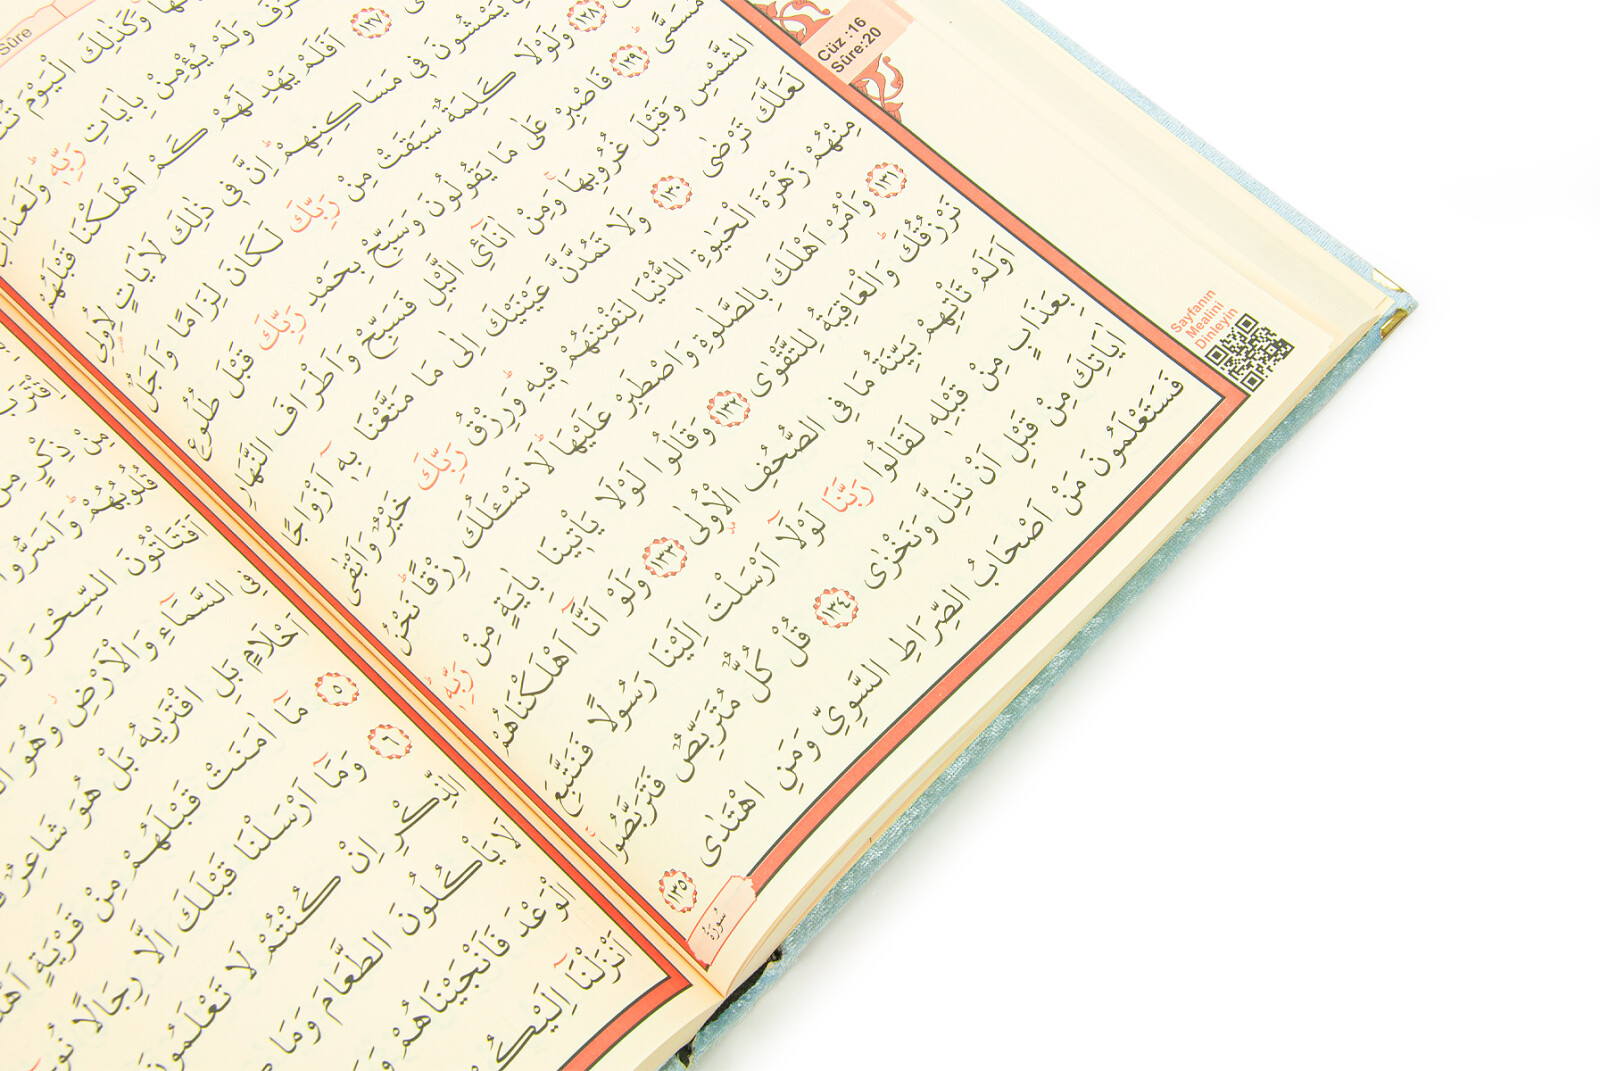 Cüz :16
Sûre:20
وَكَذٰلِكَ الْيَوْمَ
وَلَمْ يُؤْمِنْ بِاٰيَاتِ رَبِّه۪ۜ وَلَعَذَابُ
﴿١٢٧﴾ اَفَلَمْ يَهْدِ لَهُمْ كَمْ اَهْلَكْنَا قَبْلَهُمْ
يَمْشُونَ ف۪ي مَسَاكِنِهِمْۜ اِنَّ ف۪ي ذٰلِكَ لَاٰيَاتٍ لِاُو۬لِي
﴿١٢٨﴾ وَلَوْلَا كَلِمَةٌ سَبَقَتْ مِنْ رَبِّكَ لَكَانَ لِزَامًا وَاَجَلٌ
مُسَمًّىۜ ﴿١٢٩﴾ فَاصْبِرْ عَلٰى مَا يَقُولُونَ وَسَبِّحْ بِحَمْدِ رَبِّكَ قَبْلَ طُلُوعِ
الشَّمْسِ وَقَبْلَ غُرُوبِهَاۚ وَمِنْ اٰنَٓائِ الَّيْلِ فَسَبِّحْ وَاَطْرَافَ النَّهَارِ
لَعَلَّكَ تَرْضٰى ﴿١٣٠﴾ وَلَا تَمُدَّنَّ عَيْنَيْكَ اِلٰى مَا مَتَّعْنَا بِه۪ٓ اَزْوَاجًا
مِنْهُمْ زَهْرَةَ الْحَيٰوةِ الدُّنْيَا لِنَفْتِنَهُمْ ف۪يهِۜ وَرِزْقُ رَبِّكَ خَيْرٌ وَاَبْقٰى
﴿١٣١﴾ وَأْمُرْ اَهْلَكَ بِالصَّلٰوةِ وَاصْطَبِرْ عَلَيْهَاۜ لَا نَسْـَٔلُكَ رِزْقًاۜ نَحْنُ
نَرْزُقُكَۜ وَالْعَاقِبَةُ لِلتَّقْوٰى ﴿١٣٢﴾ وَقَالُوا لَوْلَا يَأْت۪ينَا بِاٰيَةٍ مِنْ رَبِّه۪ۜ
اَوَلَمْ تَأْتِهِمْ بَيِّنَةُ مَا فِي الصُّحُفِ الْاُو۫لٰى ﴿١٣٣﴾ وَلَوْ اَنَّٓا اَهْلَكْنَاهُمْ
بِعَذَابٍ مِنْ قَبْلِه۪ لَقَالُوا رَبَّنَا لَوْلَٓا اَرْسَلْتَ اِلَيْنَا رَسُولًا فَنَتَّبِعَ
اٰيَاتِكَ مِنْ قَبْلِ اَنْ نَذِلَّ وَنَخْزٰى ﴿١٣٤﴾ قُلْ كُلٌّ مُتَرَبِّصٌ فَتَرَبَّصُواۚ
فَسَتَعْلَمُونَ مَنْ اَصْحَابُ الصِّرَاطِ السَّوِيِّ وَمَنِ اهْتَدٰى ﴿١٣٥﴾
سُورَةُ
Sayfanın
Mealini
Dinleyin
Sûre
اِقْتَرَبَ
مِنْ ذِكْرٍ مِنْ
قُلُوبُهُمْۜ وَاَسَرُّوا
اَفَتَأْتُونَ السِّحْرَ
فِي السَّمَٓاءِ وَالْاَرْضِۘ وَهُوَ
اَحْلَامٍ بَلِ افْتَرٰيهُ بَلْ هُوَ شَاعِرٌۚ
﴿٥﴾ مَٓا اٰمَنَتْ قَبْلَهُمْ مِنْ قَرْيَةٍ
﴿٦﴾ وَمَٓا اَرْسَلْنَا قَبْلَكَ اِلَّا رِجَالًا
الذِّكْرِ اِنْ كُنْتُمْ لَا تَعْلَمُونَ
لَا يَأْكُلُونَ الطَّعَامَ وَمَا
الْوَعْدَ فَاَنْجَيْنَاهُمْ
اَنْزَلْنَٓا اِلَيْكُمْ